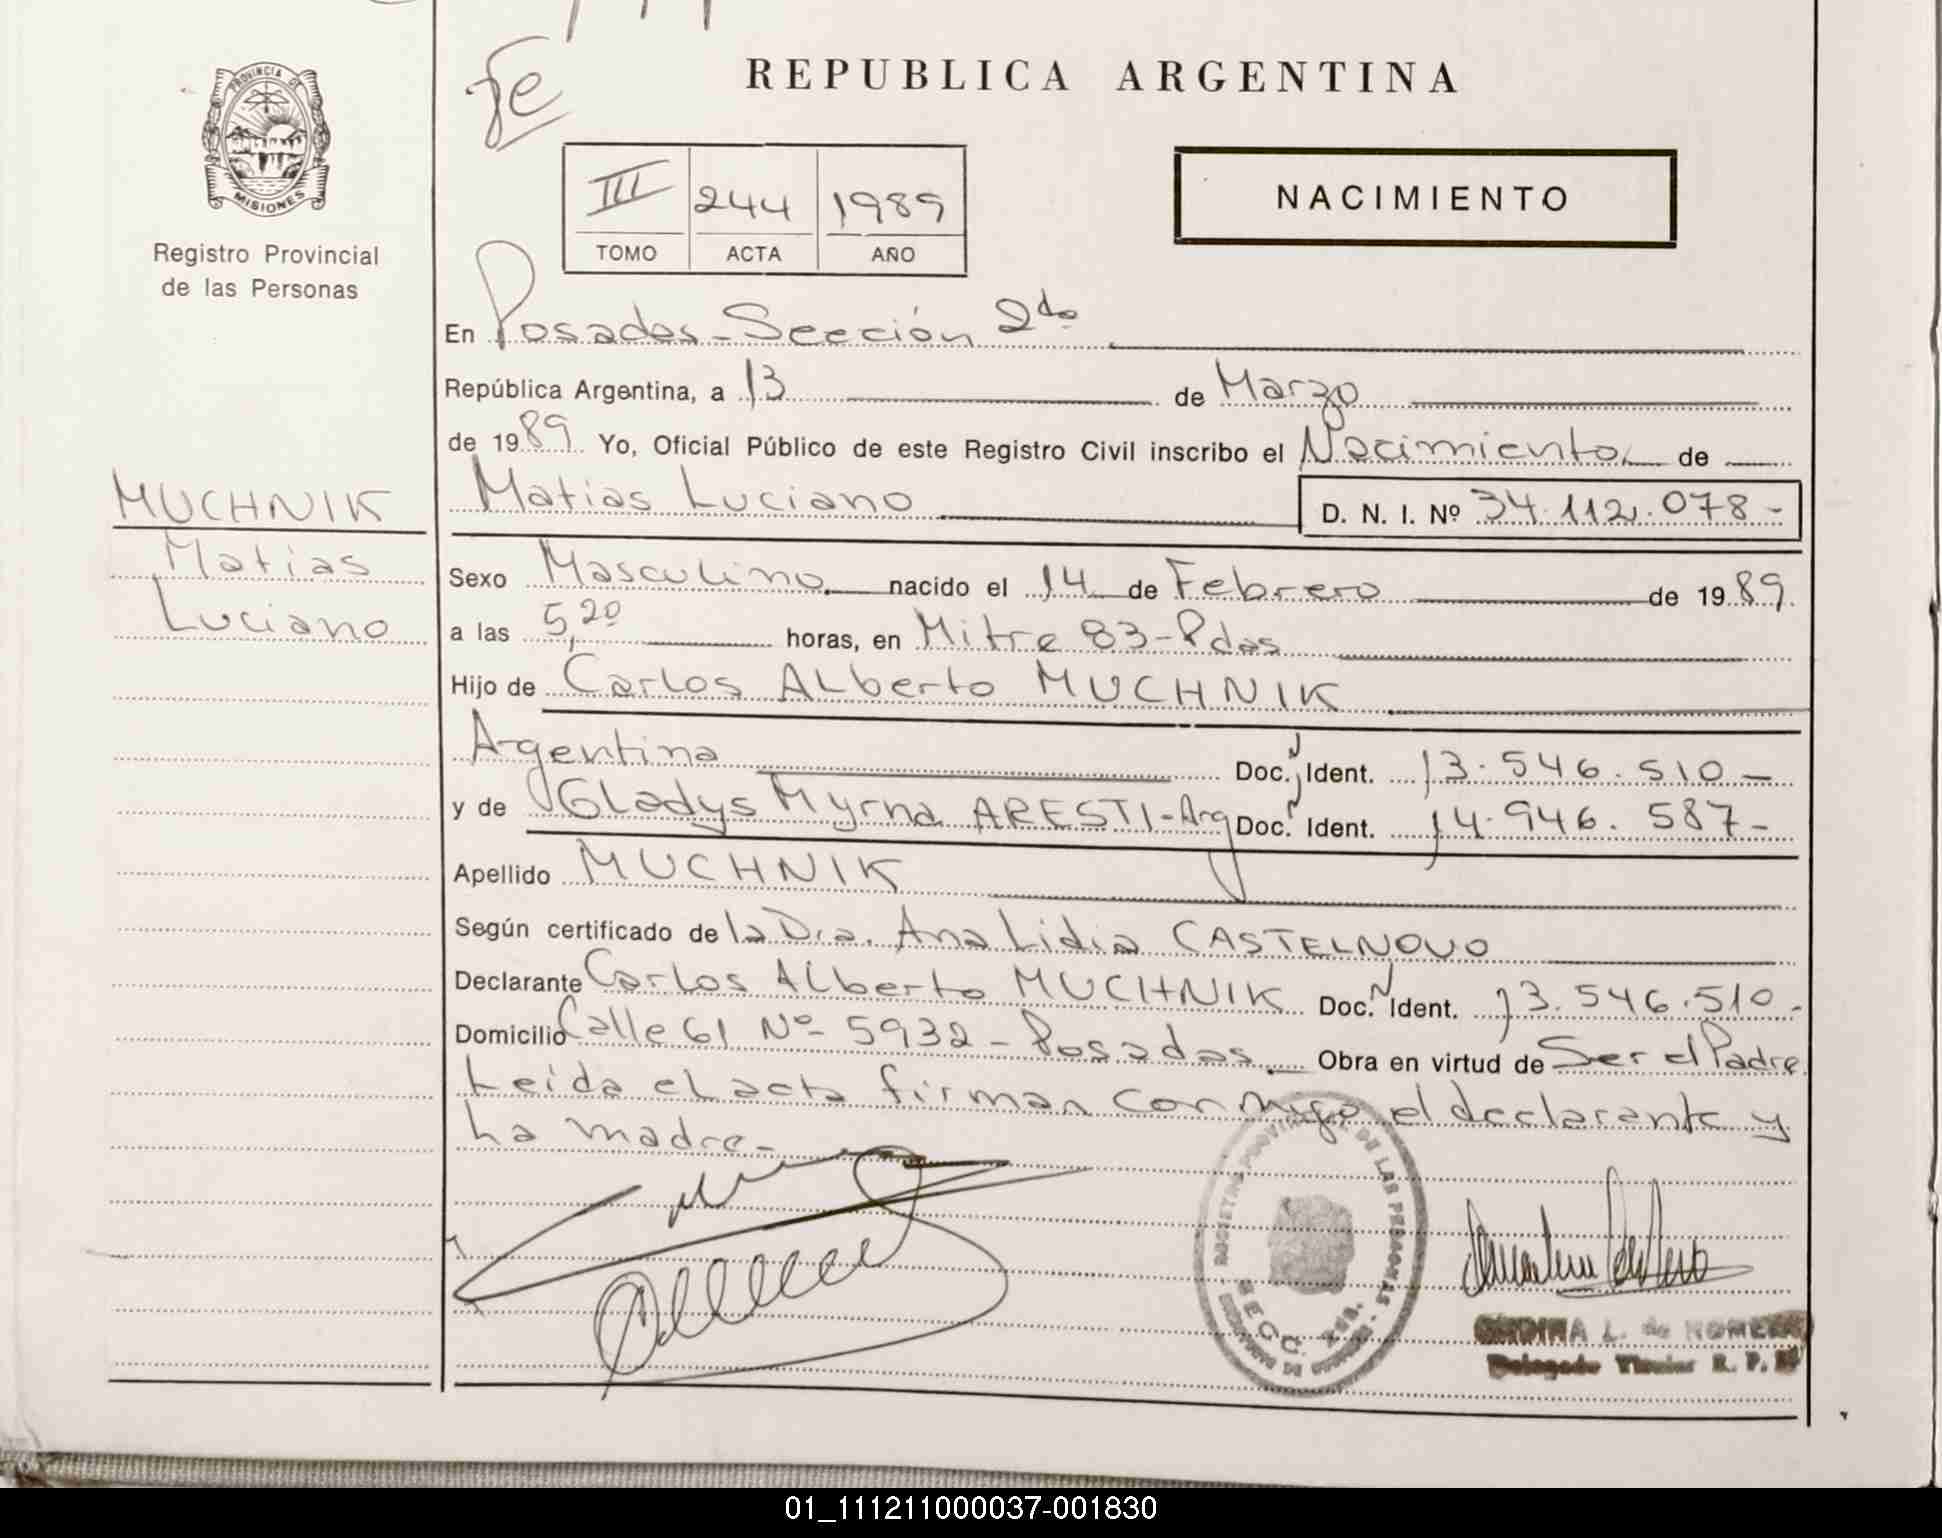 Fe
REPUBLICA ARGENTINA
PROVINCIA DE
MISIONES
Registro Provincial
de las Personas
III 244 1989
TOMO ACTA AÑO
NACIMIENTO
En Posadas - Sección 2da
República Argentina, a 13 de Marzo
de 1989. Yo, Oficial Público de este Registro Civil inscribo el Nacimiento de
Matias Luciano
D. N. I. Nº 34.112.078-
MUCHNIK
Matias
Luciano
Sexo Masculino nacido el 14 de Febrero de 1989.
a las 5,20 horas, en Mitre 83-Pdas
Hijo de Carlos Alberto MUCHNIK
Argentina Doc. N Ident. 13.546.510-
y de Gladys Myrna ARESTI-Arg Doc. N Ident. 14.946.587-
Apellido MUCHNIK
Según certificado de la Dra. Ana Lidia CASTELNOVO
Declarante Carlos Alberto MUCHNIK Doc. N Ident. 13.546.510-
Domicilio Calle 61 Nº 5932 - Posadas Obra en virtud de Ser el Padre
Leida el acta firman conmigo el declarante y
La madre-
REGISTRO PROVINCIAL DE LAS PERSONAS
SECC. 2da.
L. de
Delegado Titular R. P. P.
01_111211000037-001830